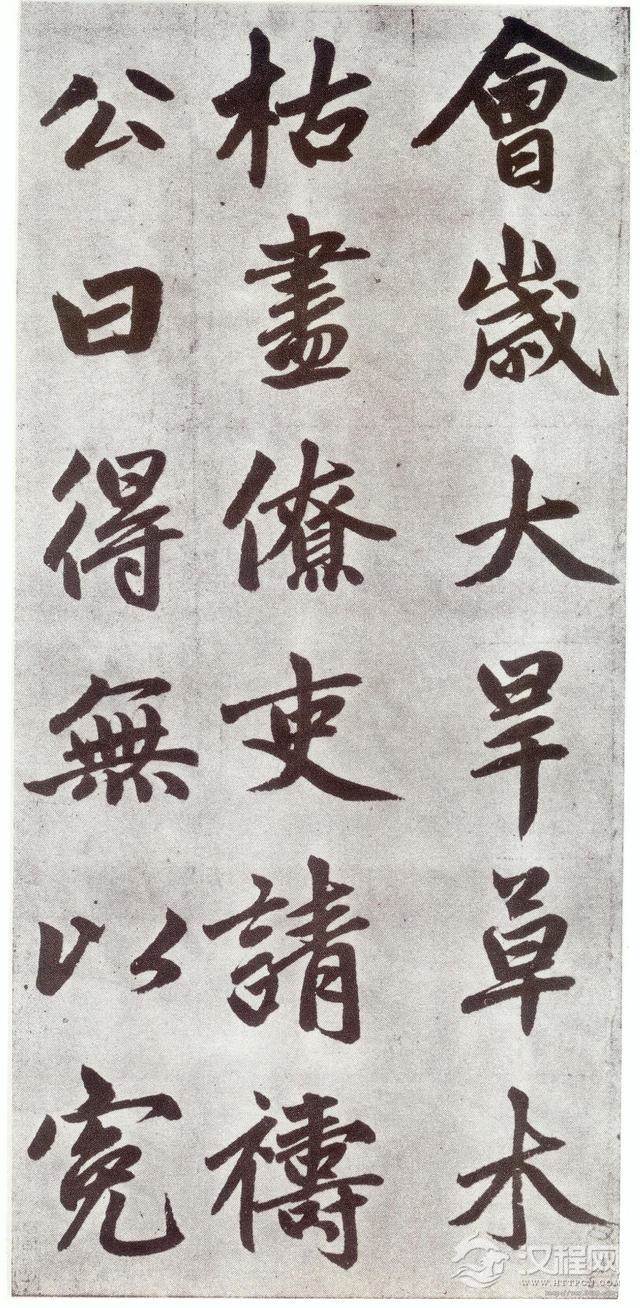 會歲大旱草木
枯盡僚吏請禱
公曰得無以寃
汉程网
WWW.HTTPCN.COM